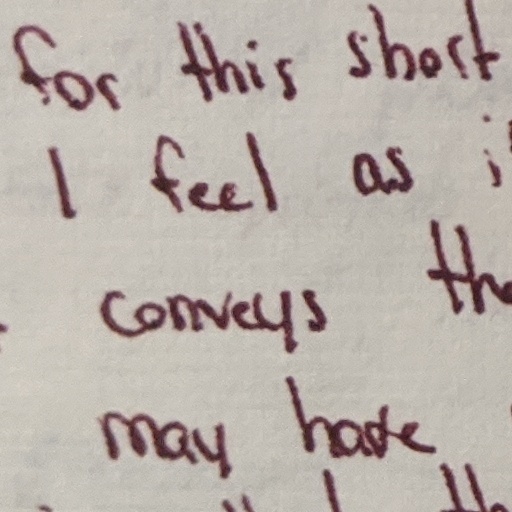 for this short
I feel as
conveys the
may have